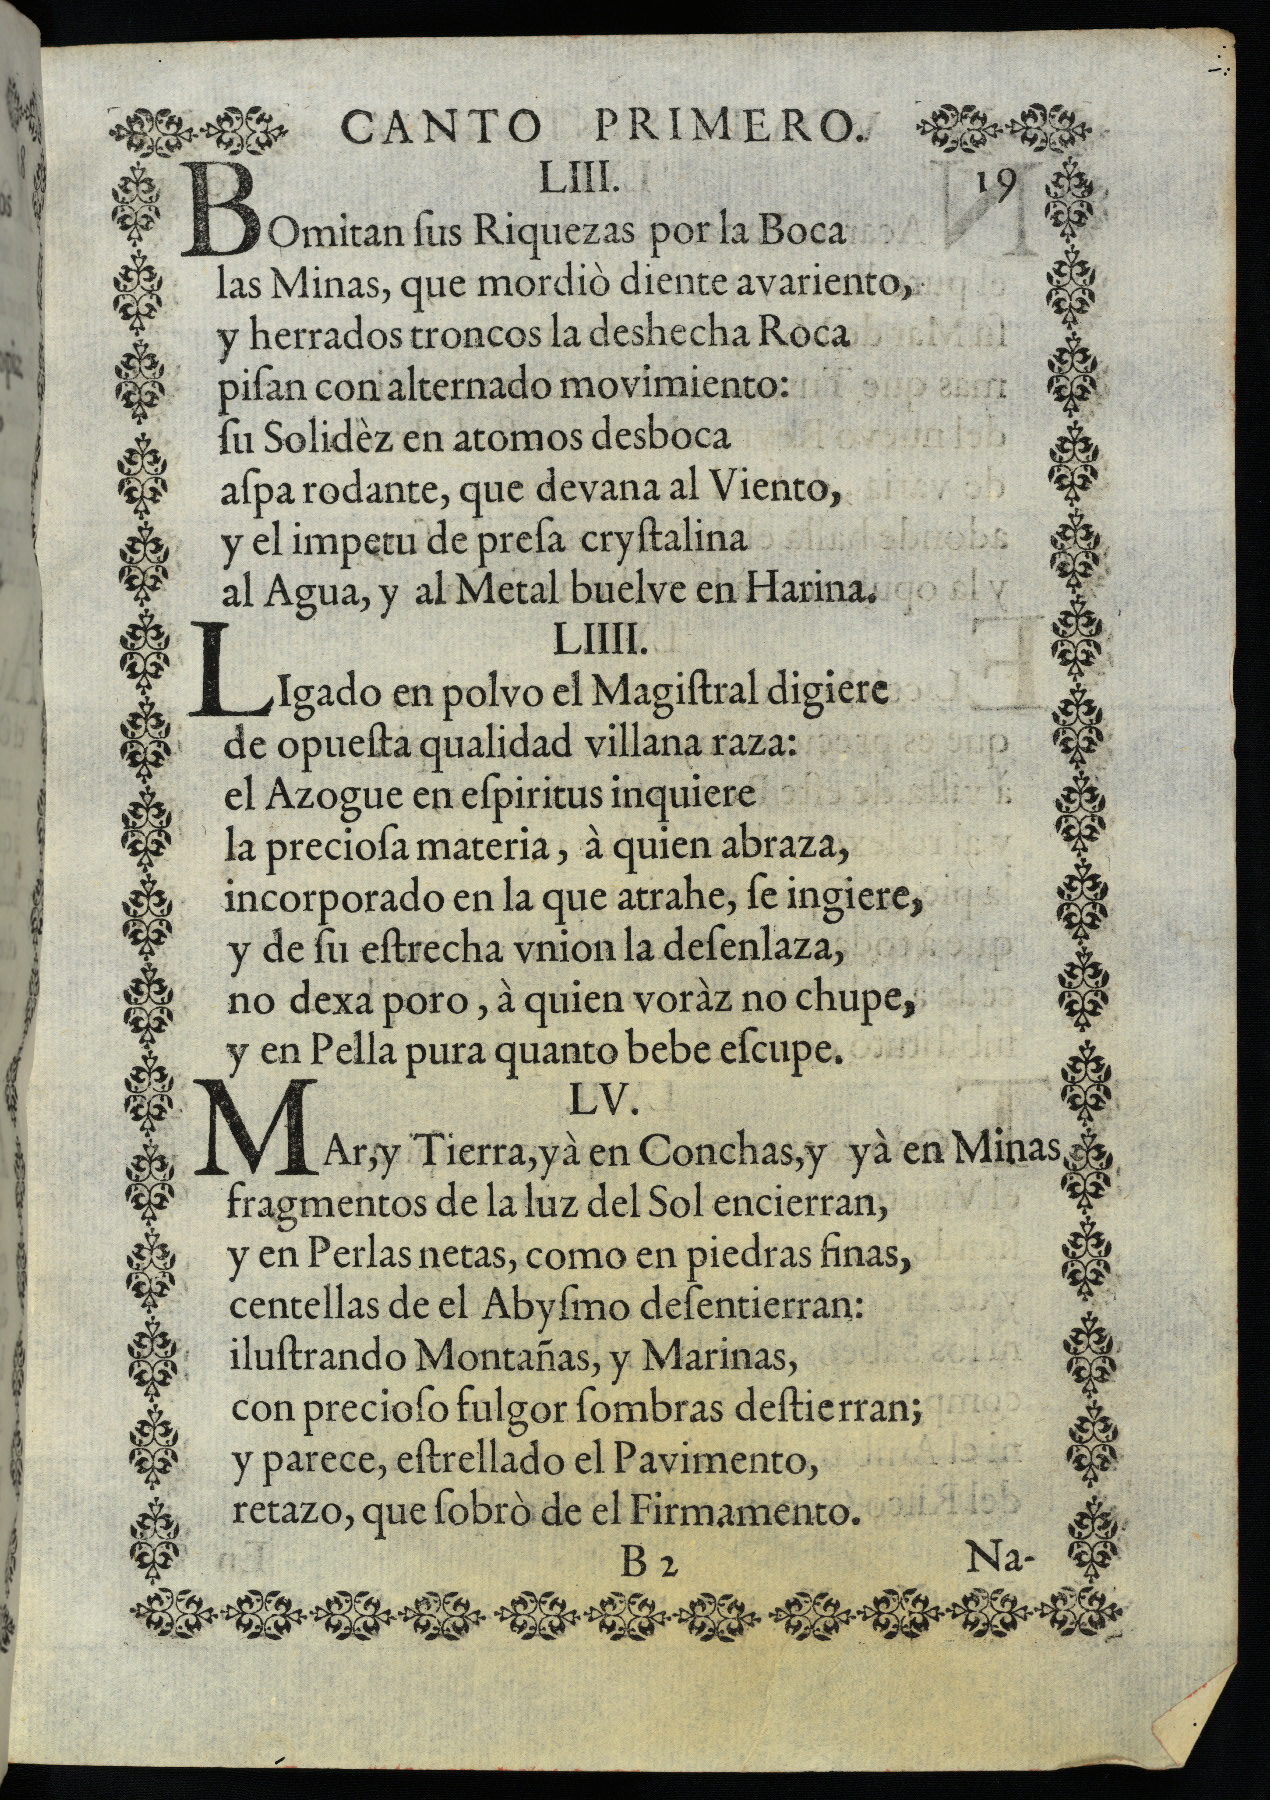 CANTO PRIMERO.
LIII. 19
BOmitan ſus Riquezas por la Boca
las Minas, que mordiò diente avariento,
y herrados troncos la deshecha Roca
piſan con alternado movimiento:
ſu Solidèz en atomos desboca
aſpa rodante, que devana al Viento,
y el impetu de preſa cryſtalina
al Agua, y al Metal buelve en Harina.
LIIII.
LIgado en polvo el Magiſtral digiere
de opueſta qualidad villana raza:
el Azogue en eſpiritus inquiere
la precioſa materia, à quien abraza,
incorporado en la que atrahe, ſe ingiere,
y de ſu eſtrecha vnion la deſenlaza,
no dexa poro, à quien voràz no chupe,
y en Pella pura quanto bebe eſcupe.
LV.
MAr,y Tierra,yà en Conchas,y yà en Minas,
fragmentos de la luz del Sol encierran,
y en Perlas netas, como en piedras finas,
centellas de el Abyſmo deſentierran:
iluſtrando Montañas, y Marinas,
con precioſo fulgor ſombras deſtierran;
y parece, eſtrellado el Pavimento,
retazo, que ſobrò de el Firmamento.
B 2 Na-